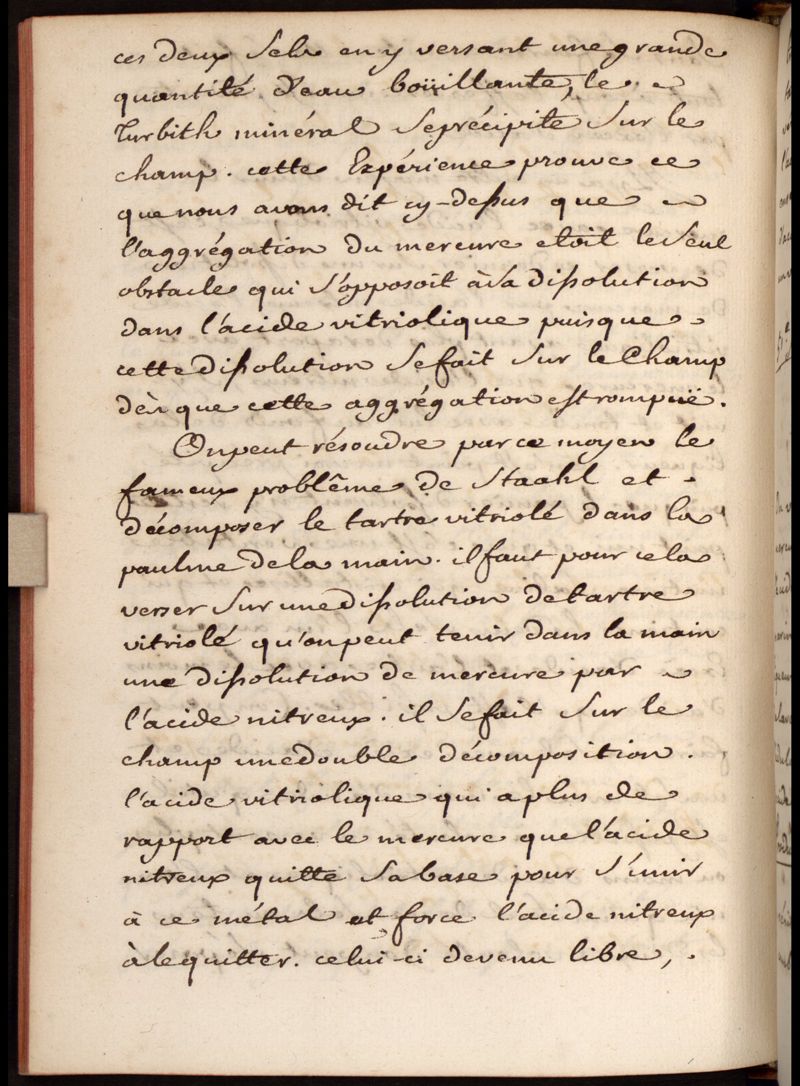 ces deux Sels en y versant une grande
quantité d'eau boüillante, le
Turbith minéral se précipite sur le
champ. cette Expérience prouve ce
que nous avons dit cy-dessus que
l'aggrégation du mercure etoit le seul
obstacle qui s'opposoit à sa dissolution
dans l'acide vitriolique puisque
cette dissolution se fait sur le champ
dès que cette aggrégation est rompuë.
On peut résoudre par ce moyen le
fameux problême de Staahl et
décomposer le tartre vitriolé dans la
paulme de la main. il faut pour cela
verser sur une dissolution de tartre
vitriolé qu'on peut tenir dans la main
une dissolution de mercure par
l'acide nitreux. il se fait sur le
champ une double décomposition.
l'acide vitriolique qui a plus de
rapport avec le mercure que l'acide
nitreux quitte sa base pour s'unir
à ce métal et force l'acide nitreux
à le quitter. celui-ci devenu libre,